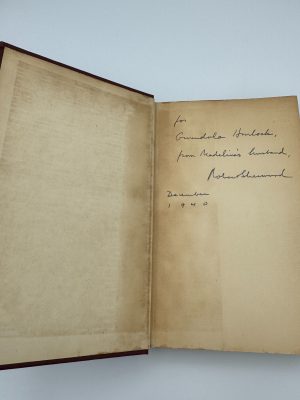 for
Gwendola
from Madeline's husband,
Robert Sherwood
December
1940